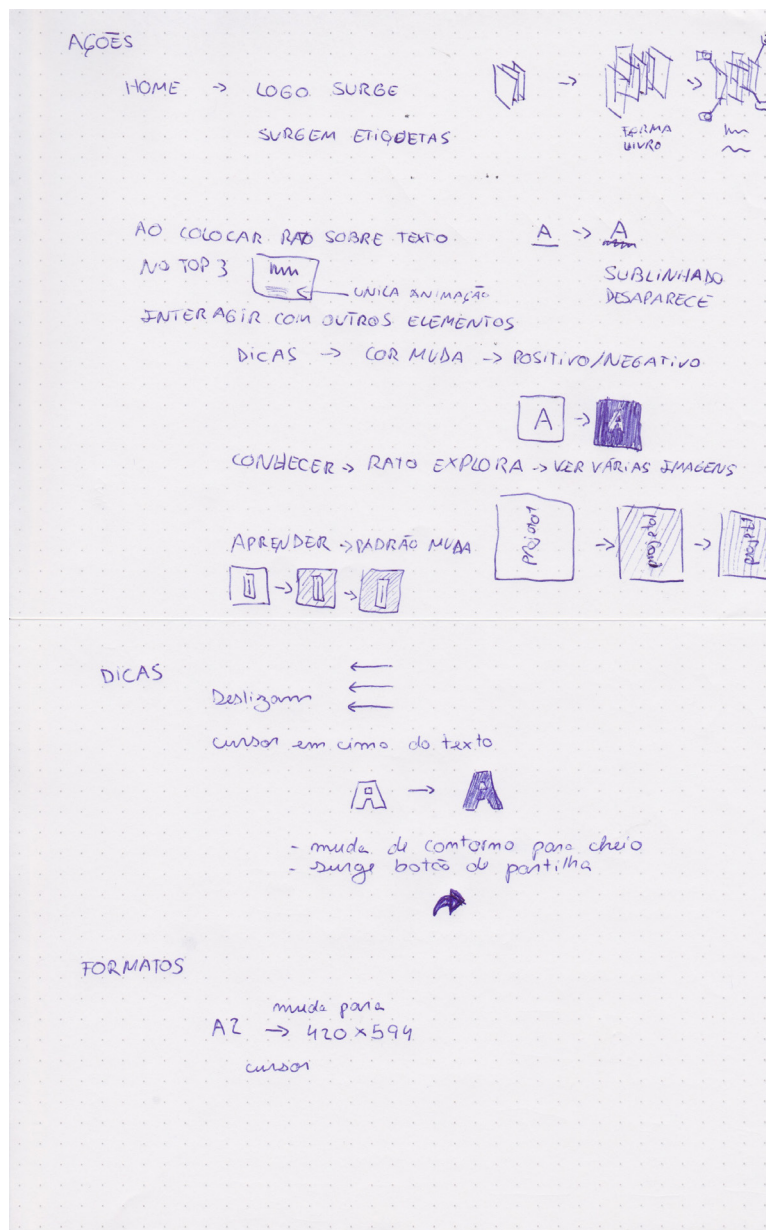 AÇÕES
HOME → LOGO SURGE
SURGEM ETIQUETAS
FORMA
LIVRO
AO COLOCAR RATO SOBRE TEXTO
A → A
NO TOP 3
UNICA ANIMAÇÃO
SUBLINHADO
DESAPARECE
INTERAGIR COM OUTROS ELEMENTOS
DICAS → COR MUDA → POSITIVO/NEGATIVO
A → A
CONHECER → RATO EXPLORA → VER VÁRIAS IMAGENS
APRENDER → PADRÃO MUDA
DICAS
Deslizam
cursor em cima do texto
A → A
- muda de contorno para cheio
- surge botão de partilha
FORMATOS
muda para
A2 → 420 × 594
cursor